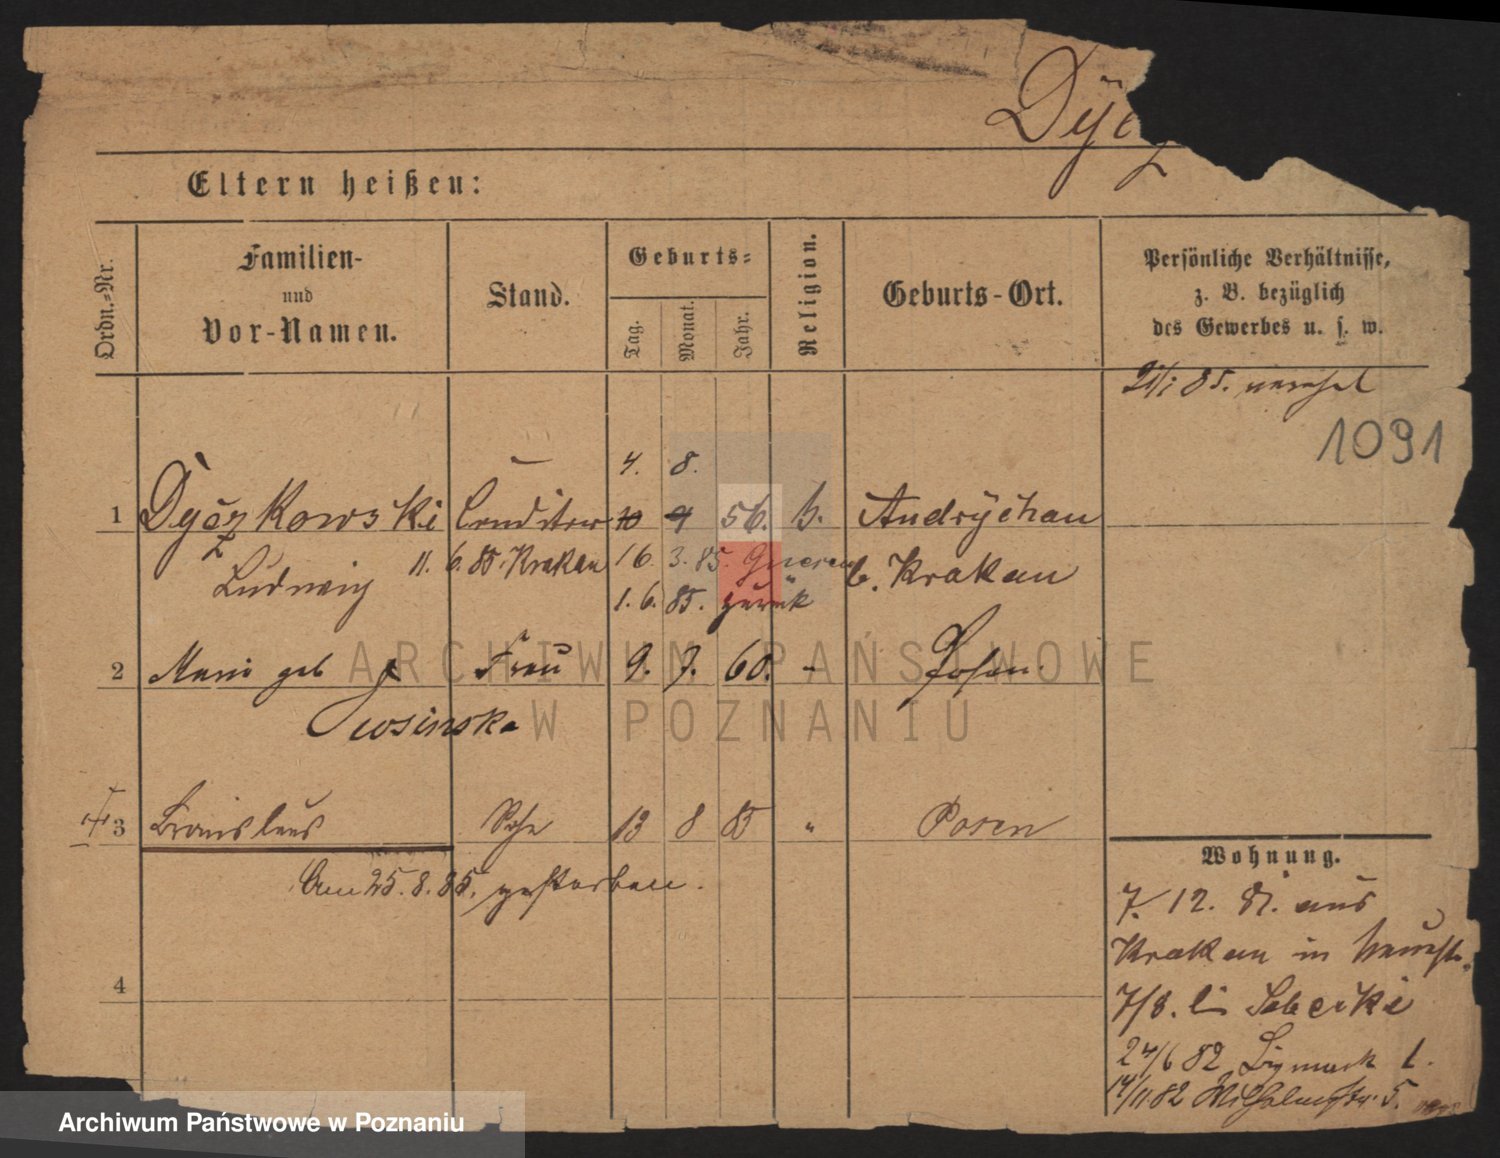 Dÿcz
Eltern heißen:
Ordn.-Nr.
Familien-
und
Vor-Namen.
Stand.
Geburts-
Tag.
Monat.
Jahr.
Religion.
Geburts-Ort.
Persönliche Verhältnisse,
z. B. bezüglich
des Gewerbes u. s. w.
85.
1091
4. 8.
1 Dyczkowski Conditor 10 56. k. Andrychau
Ludwig 11. 6. 85. Krakau 16. 3. 85. b. Krakau
1. 6. 85. zurück
2 Marie geb Frau 9. 7. 60. " Posen.
3 Bronislaus Sohn 13 8 85 " Posen
Am 25. 8. 85. gestorben.
4
Wohnung.
7/12. 81. aus
Krakau in
7/8. bei
24/6 82 Bismark 1.
14/11 82 Wilhelmstr. 5.
ARCHIWUM PAŃSTWOWE
W POZNANIU
Archiwum Państwowe w Poznaniu